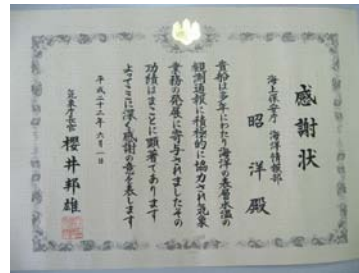 感謝状
海上保安庁 海洋情報部
昭洋殿
貴船は多年にわたり海洋の表層水温の
観測通報に積極的に協力され気象
業務の発展に寄与されましたその
功績はまことに顕著であります
よってここに深く感謝の意を表します
平成二十二年六月一日
気象庁長官 櫻井邦雄